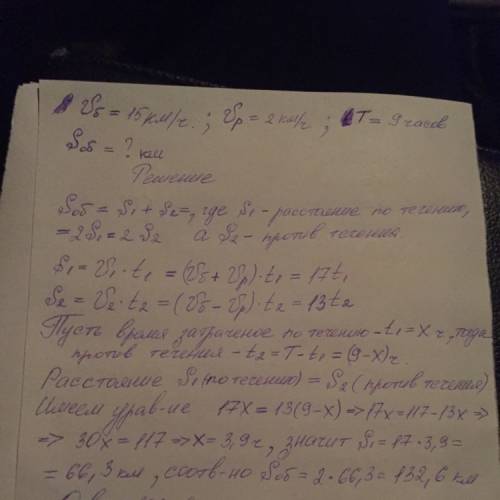 Vб = 15 км/ч. ; Vр = 2 км/ч ; T = 9 часов
Sоб = ? км
Решение
Sоб = S1 + S2 =, где S1 - расстояние по течению,
= 2S1 = 2 S2 а S2 - против течения.
S1 = V1 · t1 = (Vб + Vр) · t1 = 17t1
S2 = V2 · t2 = (Vб - Vр) · t2 = 13t2
Пусть время затраченое по течению - t1 = X ч, тогда
против течения - t2 = T - t1 = (9 - X) ч.
Расстояние S1 (по течению) = S2 (против течения)
Имеем урав-ие 17X = 13(9 - X) => 17x = 117 - 13x =>
=> 30x = 117 => X = 3,9 ч, значит S1 = 17 · 3,9 =
= 66,3 км, соотв-но Sоб = 2 · 66,3 = 132,6 км